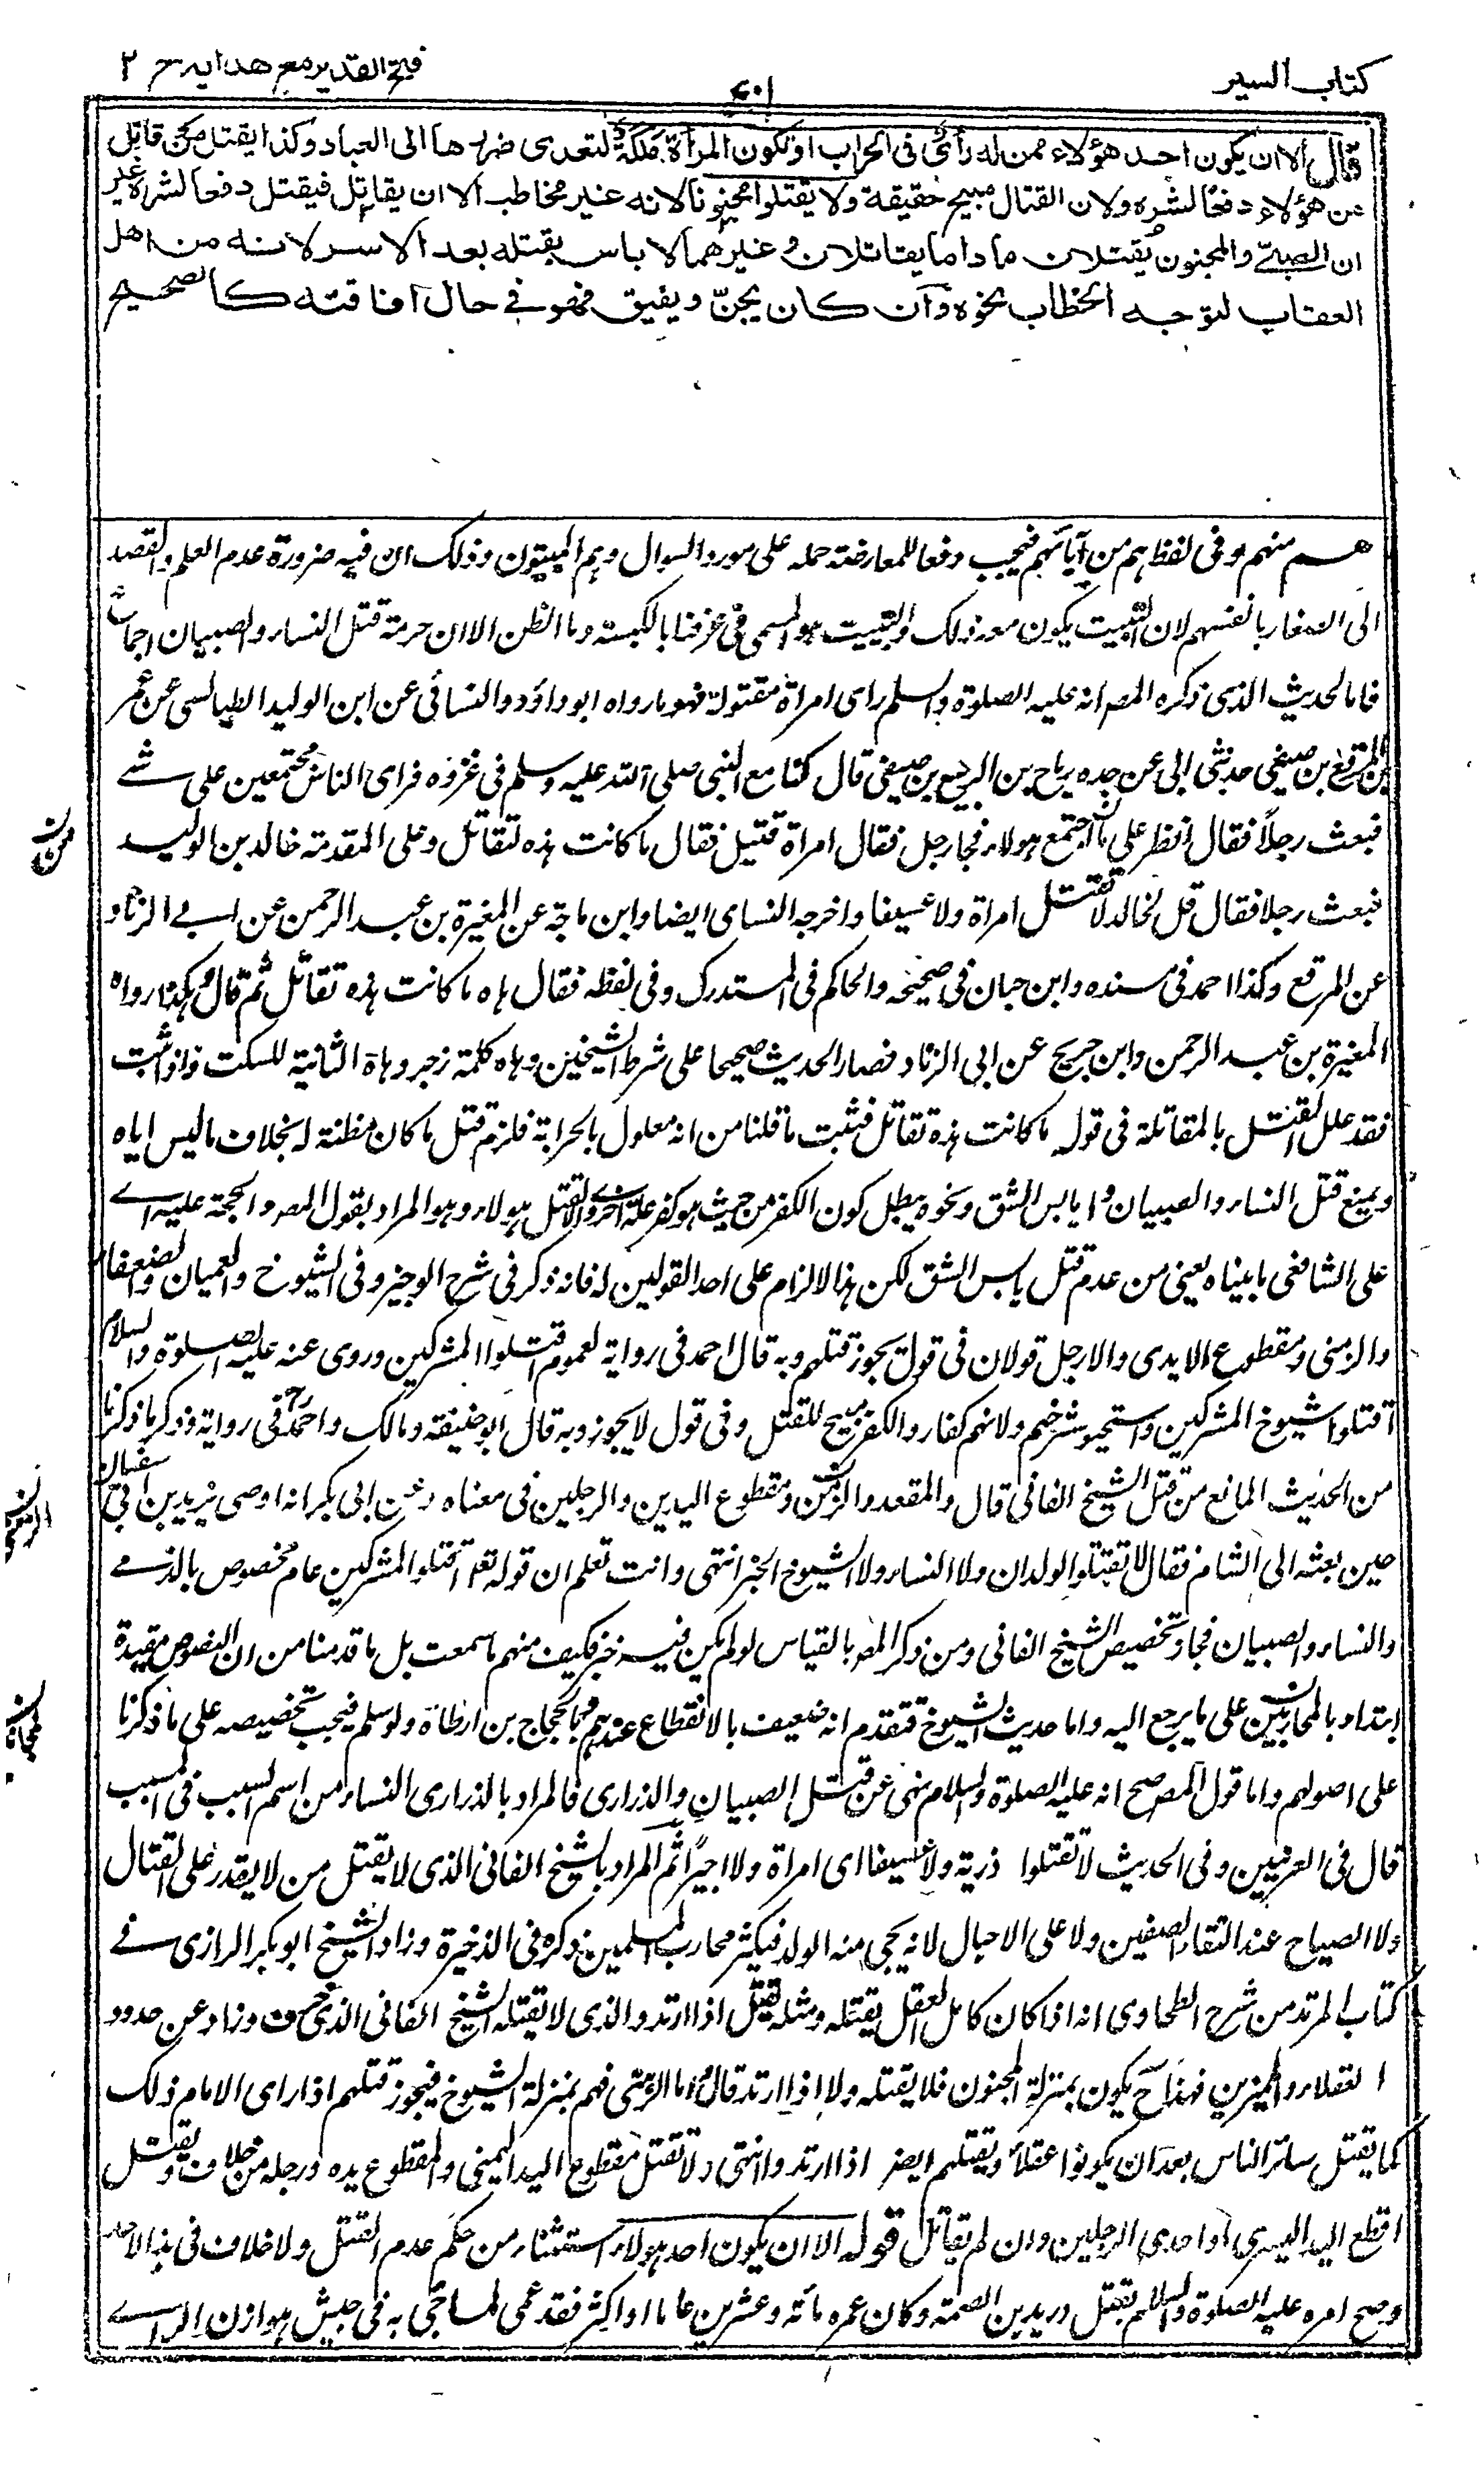 كتاب السير
٧٠١
فتح القدير مع هدايه ج ٢
قال الا ان يكون احد هؤلاء ممن له رأى فى الحراب او تكون المرأة ملكة لتعدى ضررها الى العباد وكذا يقتل من قاتل
من هؤلاء دفعا لشره ولان القتال مبيح حقيقة ولا يقتلوا مجنونا لانه غير مخاطب الا ان يقاتل فيقتل دفعا لشره غير
ان الصبى والمجنون يقتلان ما داما يقاتلان وغيرهما لا باس بقتله بعد الاسر لانه من اهل
العقاب لتوجه الخطاب نحوه وان كان يجن ويفيق فهو فى حال افاقته كالصحيح
هم منهم وفى لفظ هم من آبائهم فيجب دفعا للمعارضة حمله على مورد السوال وهم المبيتون وذلك ان فيه ضرورة عدم العلم والقصد
الى الصغار بانفسهم لان التبييت يكون معه ذلك والتبييت هو المسمى فى عرفنا بالكبسة وما الظن الا ان حرمة قتل النساء والصبيان اجماع
فاما الحديث الذى ذكره المص انه عليه الصلوة والسلم راى امراة مقتولة فهو ما رواه ابو داؤد والنسائى عن ابن الوليد الطيالسى عن عمر
بن المرقع بن صيفى حدثنى ابى عن جده رباح بن الربيع بن صيفى قال كنا مع النبى صلى الله عليه وسلم فى غزوه فراى الناس مجتمعين على شے
فبعث رجلاً فقال انظر على ما اجتمع هولاء فجاء رجل فقال امراة قتيل فقال ما كانت هذه لتقاتل وعلى المقدمة خالد بن الوليد
فبعث رجلا فقال قل لخالد لا تقتل امراة ولا عسيفا واخرجه النساى ايضا وابن ماجة عن المغيرة بن عبد الرحمن عن ابى الزناد
عن المرقع وكذا احمد فى مسنده وابن حبان فى صحيحه والحاكم فى المستدرك وفى لفظه فقال هاه ما كانت هذه تقاتل ثم قال وهكذا رواه
المغيرة بن عبد الرحمن وابن جريج عن ابى الزناد فصار الحديث صحيحا على شرط الشيخين وهاه كلمة زجر وهاة الثانية للسكت واذا ثبت
فقد علل القتل بالمقاتلة فى قوله ما كانت هذه تقاتل فثبت ما قلنا من انه معلول بالحرابة فلزم قتل ما كان مظنة له بخلاف ما ليس اياه
ويمنع قتل النساء والصبيان و يابس الشق ونحوه يبطل كون الكفر من حيث هو كفر علة اخرى والا لقتل هولاء وهو المراد بقول المص والحجة عليه اے
على الشافعى ما بيناه يعنى من عدم قتل يابس الشق لكن هذا الالزام على احد القولين له فانه ذكر فى شرح الوجيز وفى الشيوخ والعميان والضعفاء
والزمنى ومقطوع الايدى والارجل قولان فى قول يجوز قتلهم وبه قال احمد فى رواية لعموم اقتلوا المشركين وروى عنه عليه الصلوة والسلام
اقتلوا شيوخ المشركين واستحيوا شرخهم ولانهم كفار والكفر مبيح للقتل وفى قول لا يجوز وبه قال ابو حنيفة ومالك واحمد رح فى رواية وذكر ما ذكرنا
من الحديث المانع من قتل الشيخ الفانى قال والمقعد والزمن ومقطوع اليدين والرجلين فى معناه وعن ابى بكر انه اوصى يزيد بن ابى سفيان
حين بعثه الى الشام فقال لا تقتلوا الولدان ولا النساء ولا الشيوخ الخ انتهى وانت تعلم ان قوله تع اقتلوا المشركين عام مخصوص بالذمے
والنساء والصبيان فجاز تخصيص الشيخ الفانى ومن ذكر المص بالقياس لو لم يكن فيه خبر فكيف منهم ما سمعت بل ما قدمنا من ان النصوص مقيدة
ابتداء بالمحاربين على ما يرجع اليه واما حديث الشيوخ فتقدم انه ضعيف بالانقطاع عندهم وبالحجاج بن ارطاة ولو سلم فيجب تخصيصه على ما ذكرنا
على اصولهم واما قول المص صح انه عليه الصلوة والسلام نهى عن قتل الصبيان والذرارى فالمراد بالذرارى النساء من اسم السبب فى المسبب
قال فى الغريبين وفى الحديث لا تقتلوا ذرية ولا عسيفا اى امراة ولا اجيرًا ثم المراد بالشيخ الفانى الذى لا يقتل من لا يقدر على القتال
ولا الصياح عند التقاء الصفين ولا على الاحبال لانه يجى منه الولد فيكثر محارب المسلمين ذكره فى الذخيرة وزاد الشيخ ابو بكر الرازى فے
كتاب المرتد من شرح الطحاوى انه اذا كان كامل العقل يقتله ومثله يقتل اذا ارتد والذى لا يقتله الشيخ الفانى الذى خرف وزاد عن حدود
العقلاء والمميزين فهذا ح يكون بمنزلة المجنون فلا يقتله ولا اذا ارتد قال واما الزمنى فهم بمنزلة الشيوخ فيجوز قتلهم اذا راى الامام ذلك
كما يقتل سائر الناس بعد ان يكونوا عقلاء ويقتلهم ايضا اذا ارتدوا انتهى ولا تقتل مقطوع اليد اليمنى والمقطوع يده ورجله من خلاف ويقتل
اقطع اليد اليسرى او احدى الرجلين وان لم يقاتل قوله الا ان يكون احد هولاء استثناء من حكم عدم القتل ولا خلاف فى هذا لاحد
وصح امره عليه الصلوة والسلام بقتل دريد بن الصمة وكان عمره مائة وعشرين عاما او اكثر فقد عمى لما جئى به فى جيش هوازن للراے